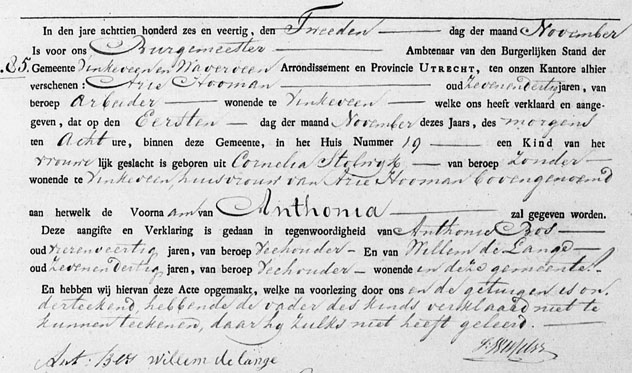 In den jare achttien honderd zes en veertig, den Tweeden dag der maand November
Is voor ons Burgemeester Ambtenaar van den Burgerlijken Stand der
25. Gemeente Vinkeveen en Waverveen Arrondissement en Provincie UTRECHT, ten onzen Kantore alhier
verschenen: Arie Hooman oud Zevenendertig jaren, van
beroep Arbeider wonende te Vinkeveen welke ons heeft verklaard en aange-
geven, dat op den Eersten dag der maand November dezes Jaars, des morgens
ten Acht ure, binnen deze Gemeente, in het Huis Nummer 19 een Kind van het
vrouwelijk geslacht is geboren uit Cornelia van beroep Zonder
wonende te Vinkeveen, huisvrouw van Arie Hooman bovengenoemd
aan hetwelk de Voornaam van Anthonia zal gegeven worden.
Deze aangifte en Verklaring is gedaan in tegenwoordigheid van Anthonie Bos
oud vierenveertig jaren, van beroep Veehouder En van Willem de Lange
oud Zevenendertig jaren, van beroep Veehouder wonende in deze gemeente.
En hebben wij hiervan deze Acte opgemaakt, welke na voorlezing door ons en de getuigen is on-
derteekend, hebbende de vader des kinds verklaard niet te
kunnen teekenen, daar hy zulks niet heeft geleerd.
Ant: Bos Willem de Lange